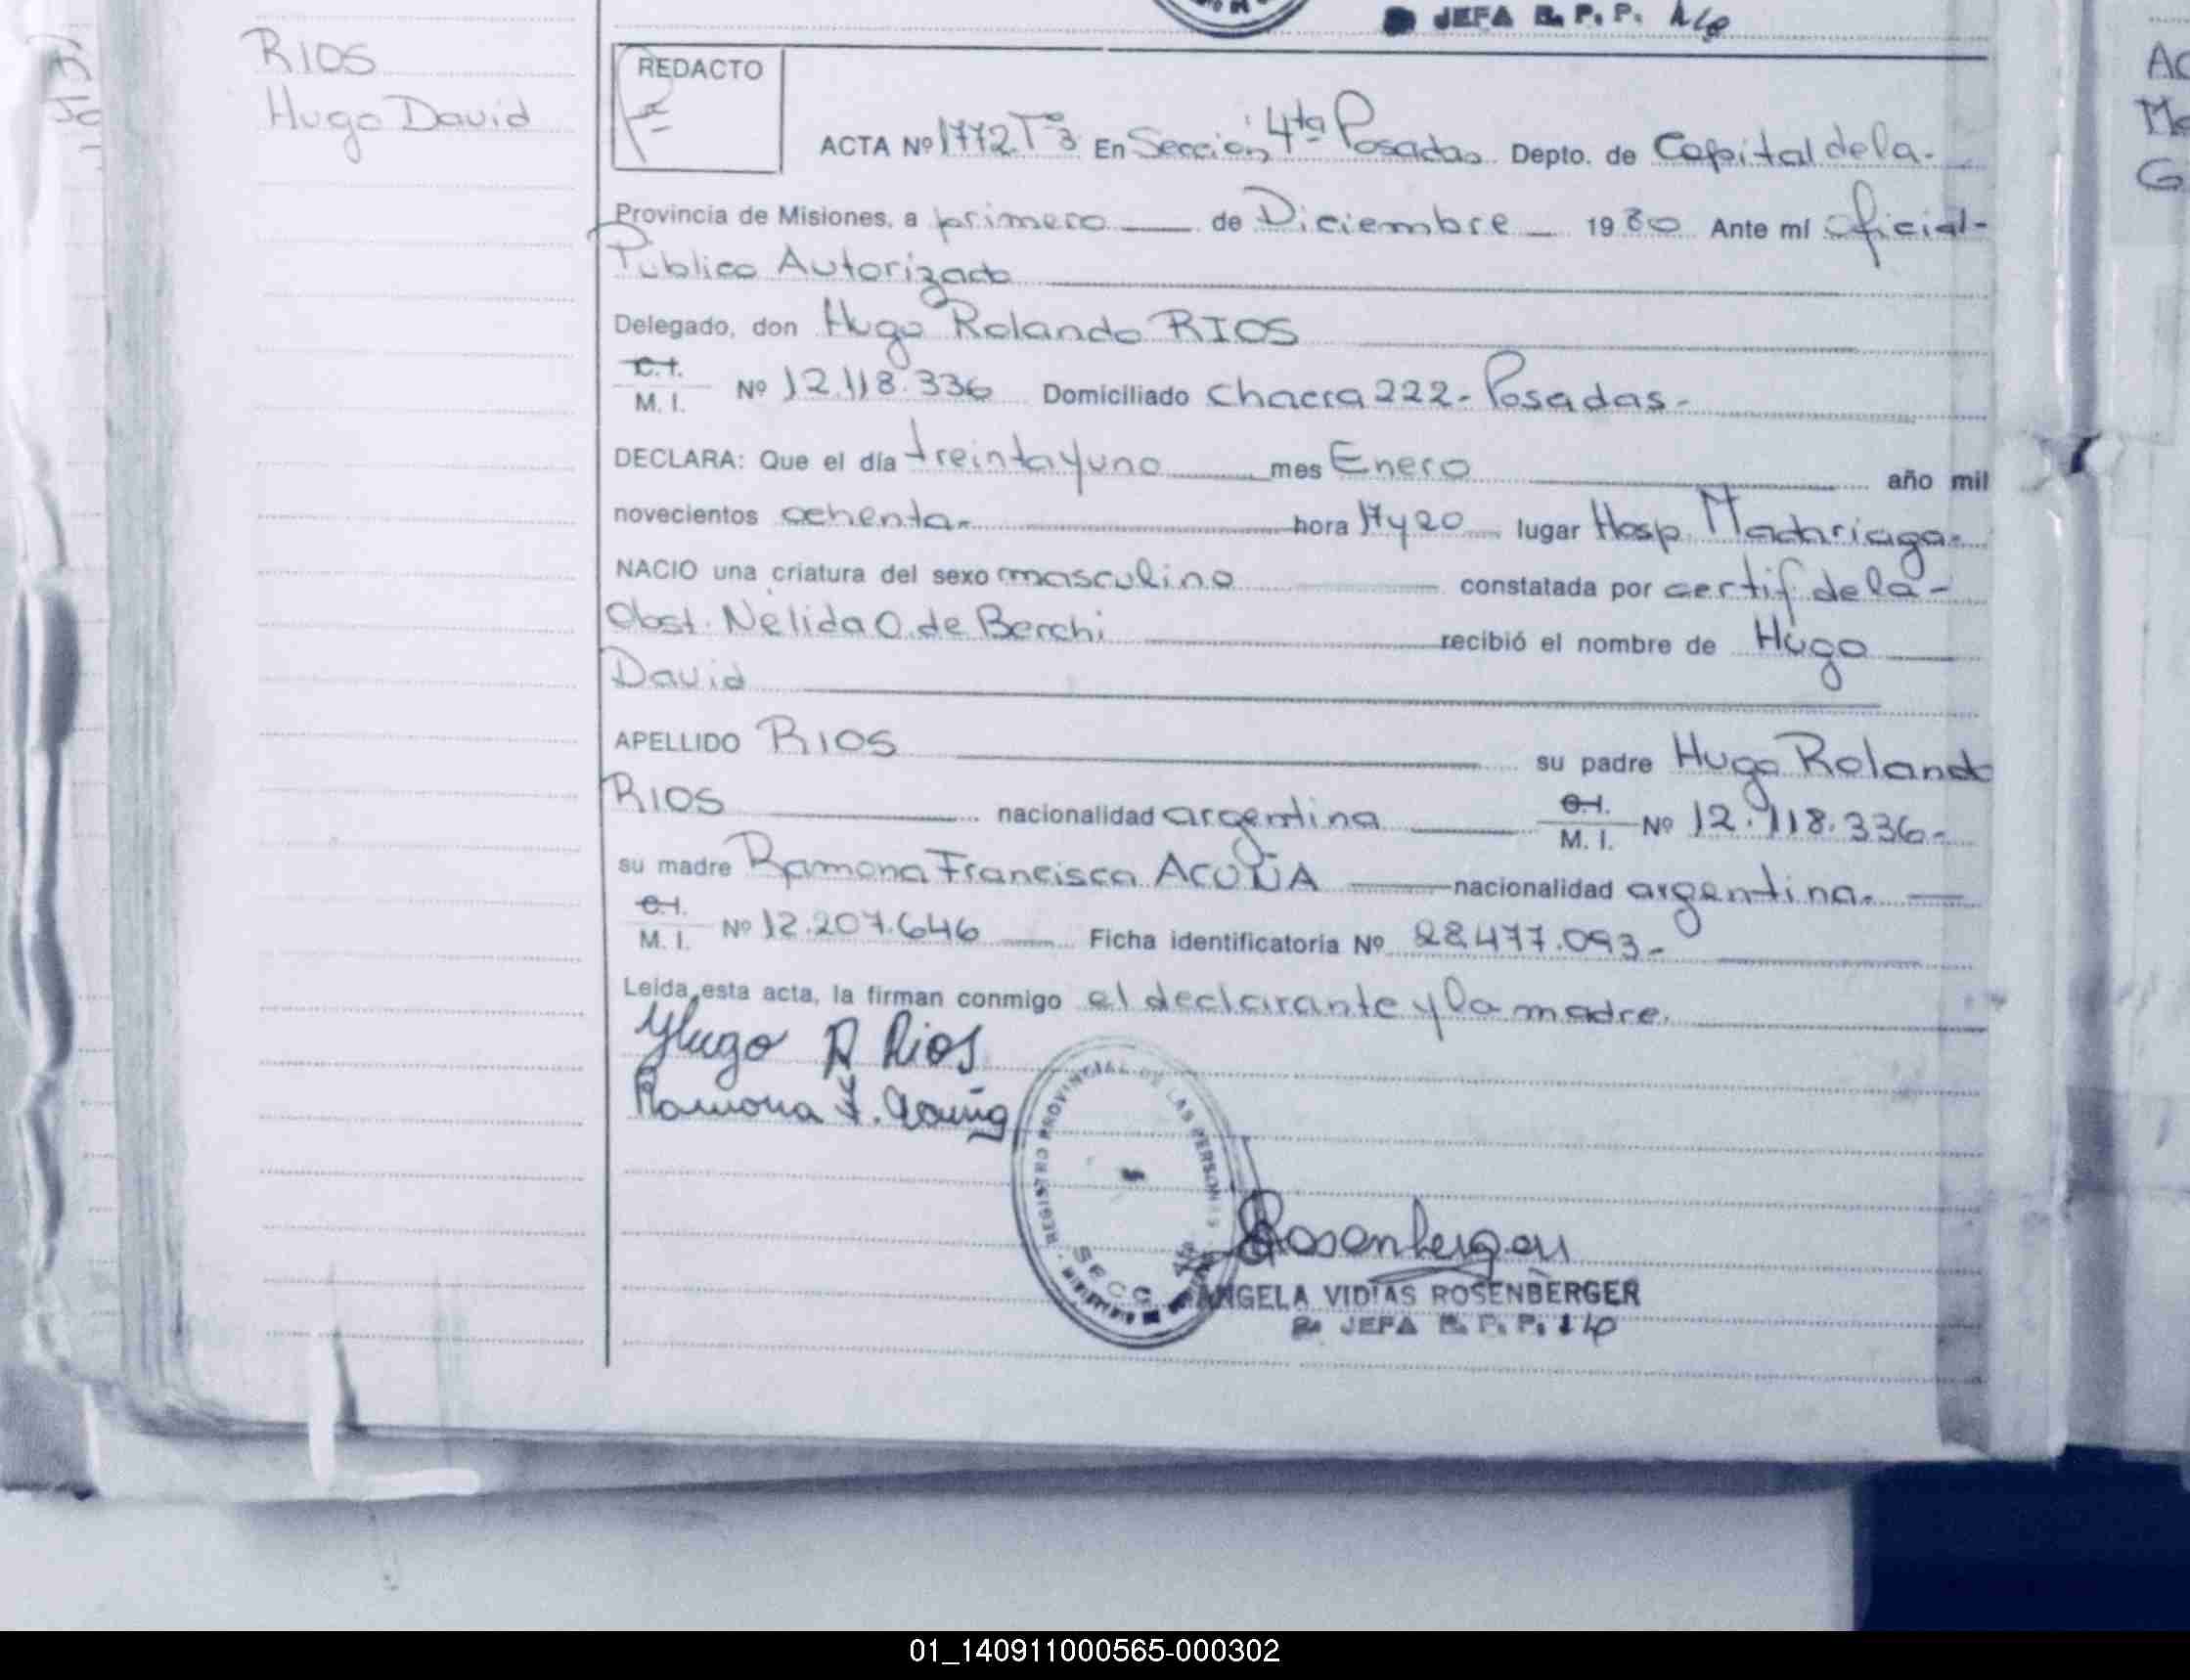 JEFA R. P. P.
RIOS
Hugo David
REDACTO
ACTA Nº 1772 Tº 3 En Sección 4ta Posadas Depto. de Capital de la-
Provincia de Misiones, a primero de Diciembre 1980 Ante mí Oficial-
Publico Autorizado
Delegado, don Hugo Rolando RIOS
C.I.
M. I. Nº 12.118.336 Domiciliado Chacra 222- Posadas-
DECLARA: Que el día treinta y uno mes Enero año mil
novecientos ochenta- hora 17 y 20 lugar Hosp. Madariaga-
NACIO una criatura del sexo masculino constatada por certif de la-
Obst. Nelida O. de Berchi recibió el nombre de Hugo
David
APELLIDO RIOS su padre Hugo Rolando
RIOS nacionalidad argentina C.I. M. I. Nº 12.118.336-
su madre Ramona Francisca ACUÑA nacionalidad argentina-
C.I.
M. I. Nº 12.207.646 Ficha identificatoria Nº 28.477.093-
Leída esta acta, la firman conmigo el declarante y la madre.
Hugo R Rios
Ramona F. Acuña
REGISTRO PROVINCIAL DE LAS PERSONAS
SECC 4ta
Rosenberger
ANGELA VIDIAS ROSENBERGER
JEFA R. P. P.
01_140911000565-000302